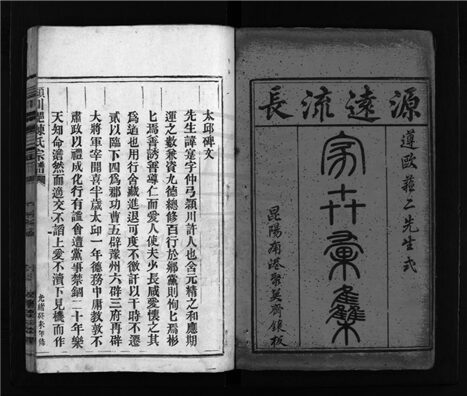 源遠流長
遵歐蘇二先生式
家乘彙集
昆陽南港聚英齋鐫板
太邱碑文
先生諱寔字仲弓潁川許人也含元精之和應期
運之數兼資九德總修百行於鄉黨則恂恂焉彬
彬焉善誘善導仁而愛人使夫少長咸愛懷之其
為道也用行舍藏進退可度不徼訐以干時不遷
貳以臨下四為郡功曹五辟豫州六辟三府再辟
大將軍宰聞喜半歲太邱一年德務中庸教敦不
肅政以禮成化行有謐會遭黨事禁錮二十年樂
天知命澹然而逸交不諂上愛不瀆下見機而作
潁川陳氏宗譜